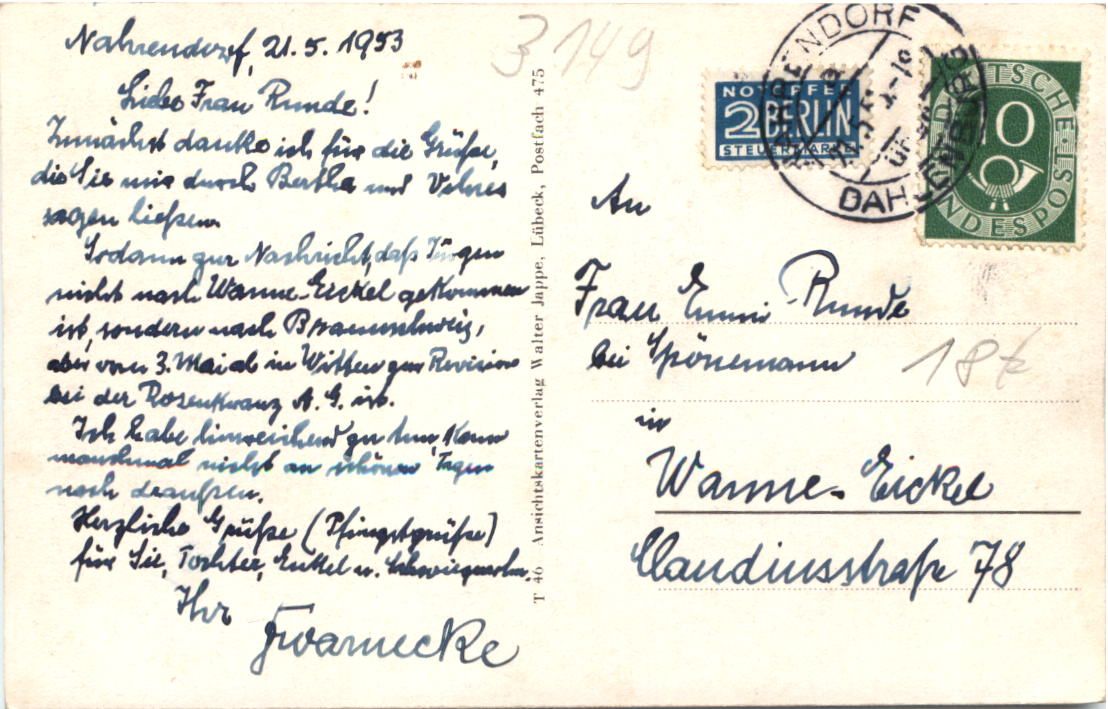 Nahrendorf, 21.5.1953
Liebe Frau Runde!
Zunächst danke ich für die Grüße,
die Sie mir durch Bertha und
sagen ließen.
Sodann zur Nachricht, daß Jürgen
nicht nach Wanne-Eickel gekommen
ist, sondern nach Braunschweig,
aber vom 3. Mai ab in Witten zur Revision
bei der Rosenkranz A.G. ist.
Ich habe hinreichend zu tun, kann
manchmal nicht an schönen Tagen
nach draußen.
Herzliche Grüße (Pfingstgrüße)
für Sie, Tochter, Enkel u. Schwiegersohn.
Ihr
FWarnecke
3149
T 46 Ansichtskartenverlag Walter Jappe, Lübeck, Postfach 475
NOTOPFER
2 BERLIN
STEUERMARKE
NAHRENDORF
DAHLENBURG
DEUTSCHE POST
10
BUNDESPOST
An
Frau Emmi Runde
bei Spönemann
18
in
Wanne-Eickel
Claudiusstraße 78